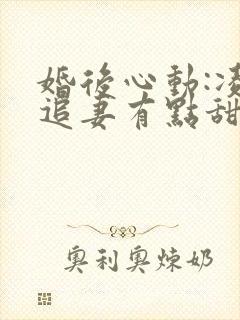 婚後心動:凌
追妻有點甜
奧利奧煉奶